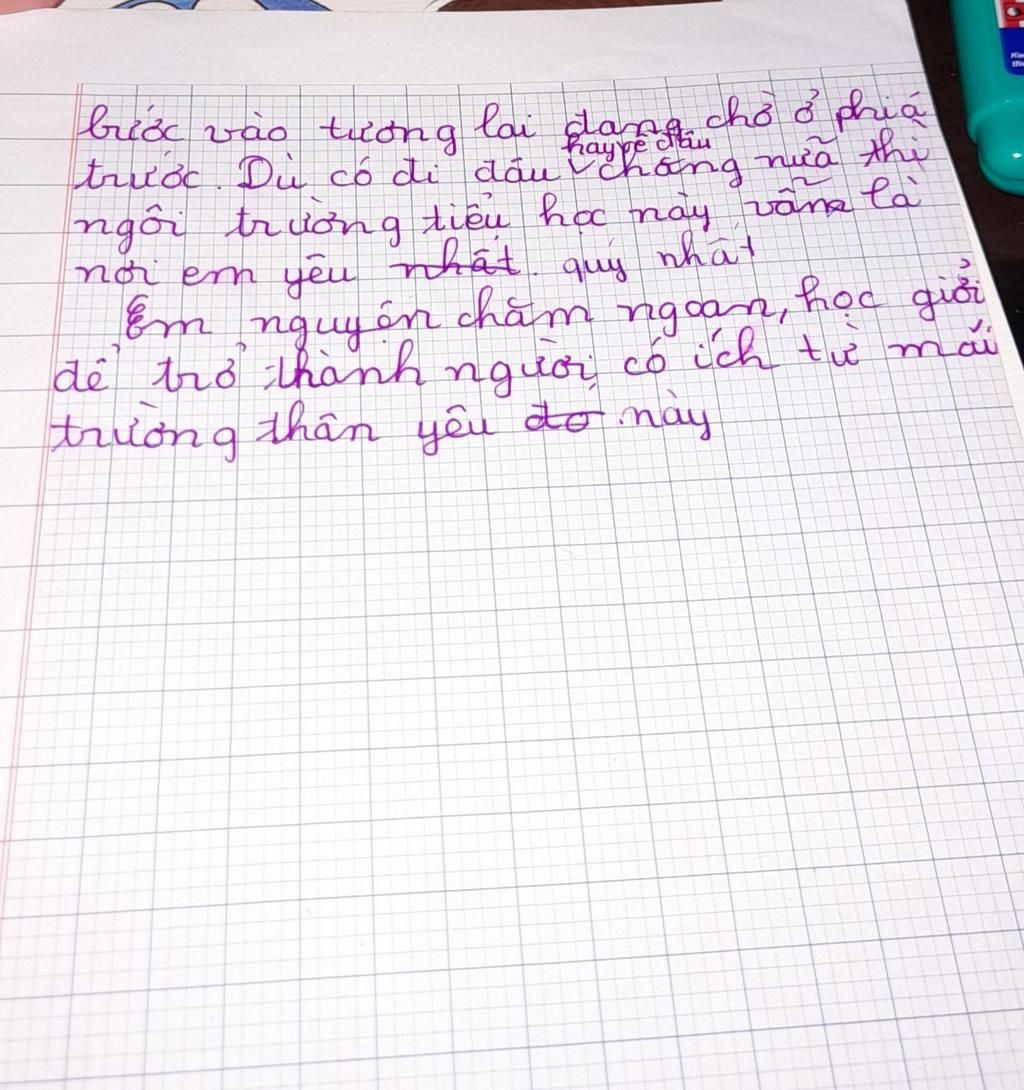 bước vào tương lai đang chờ ở phiá
hay về đâu
trước. Dù có đi đâu chăng nữa thì
ngôi trường tiểu học này vẫn là
nơi em yêu nhất quý nhất
Em nguyện chăm ngoan, học giỏi
để trở thành người có ích từ mái
trường thân yêu đó này